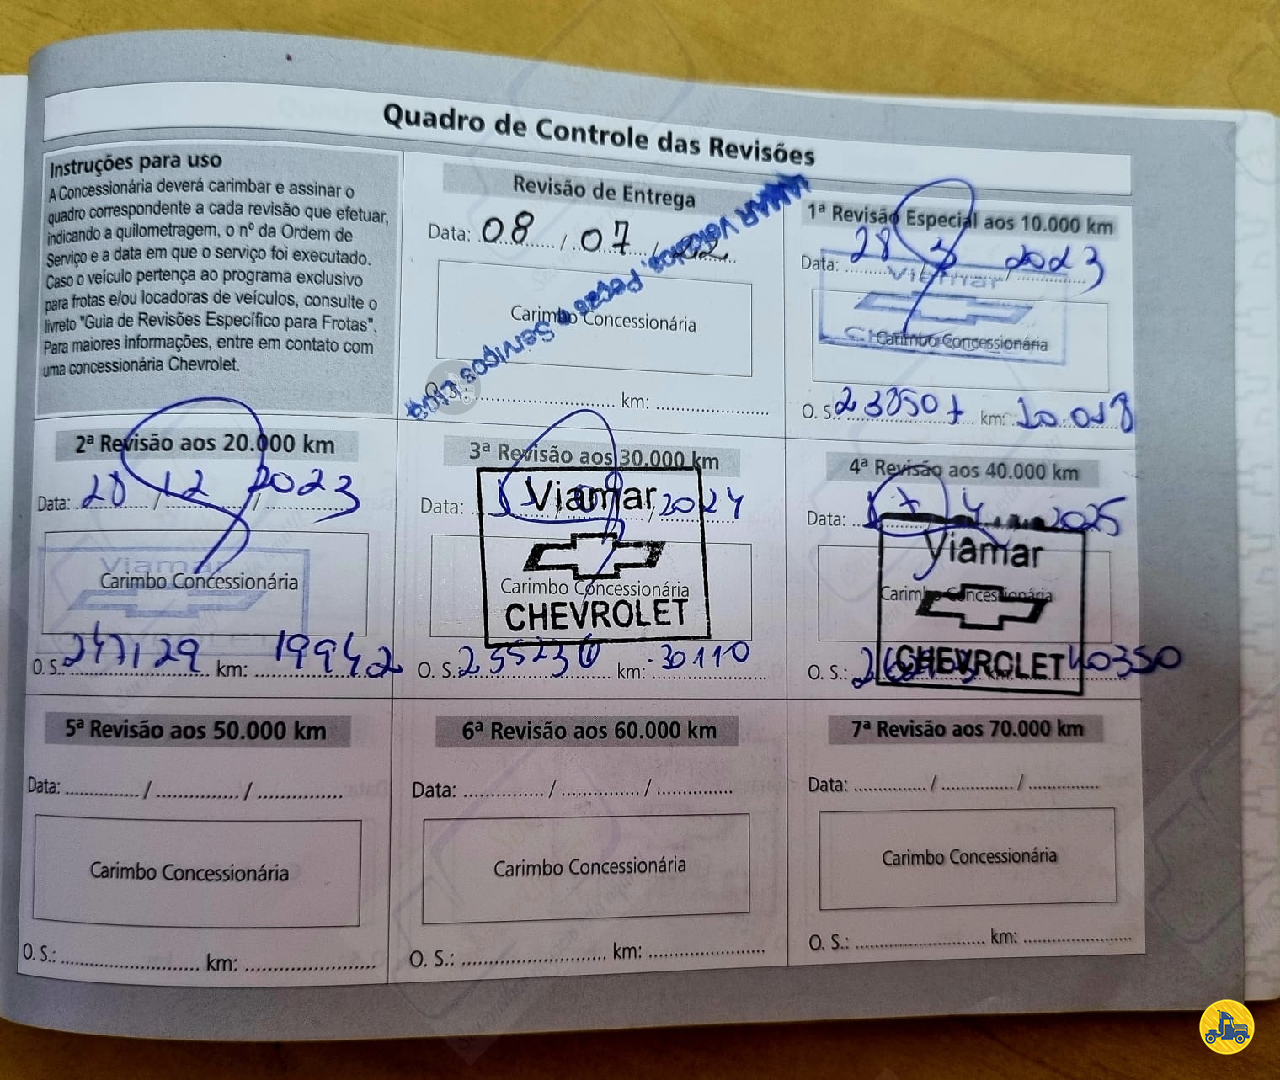 Quadro de Controle das Revisões
Instruções para uso
A Concessionária deverá carimbar e assinar o
quadro correspondente a cada revisão que efetuar,
indicando a quilometragem, o nº da Ordem de
Serviço e a data em que o serviço foi executado.
Caso o veículo pertença ao programa exclusivo
para frotas e/ou locadoras de veículos, consulte o
livreto "Guia de Revisões Específico para Frotas".
Para maiores informações, entre em contato com
uma concessionária Chevrolet.
Revisão de Entrega
Data: 08 / 07 /
VIAMAR Veículos, Peças e Serviços Ltda
Carimbo Concessionária
km:
1ª Revisão Especial aos 10.000 km
Data: 28 3 2023
Viamar
Carimbo Concessionária
O. S.: km: 10.018
2ª Revisão aos 20.000 km
Data: 20 / 12 / 2023
Viamar
Carimbo Concessionária
O. S.: 247129 km: 19942
3ª Revisão aos 30.000 km
Data: / / 2024
Viamar
Carimbo Concessionária
CHEVROLET
O. S.: km: 30110
4ª Revisão aos 40.000 km
Data: 17 4 2025
Viamar
Carimbo Concessionária
CHEVROLET
O. S.: 40350
5ª Revisão aos 50.000 km
Data: / /
Carimbo Concessionária
O. S.: km:
6ª Revisão aos 60.000 km
Data: / /
Carimbo Concessionária
O. S.: km:
7ª Revisão aos 70.000 km
Data: / /
Carimbo Concessionária
O. S.: km: